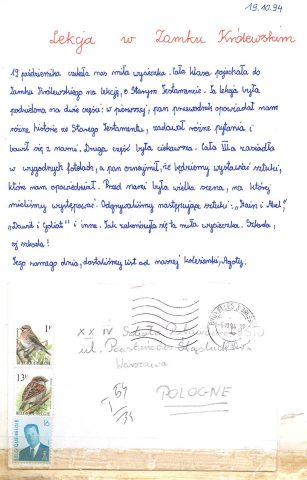 19.10.94
Lekcja w Zamku Królewskim
19 października czekała nas miła wycieczka. Cała klasa pojechała do
Zamku Królewskiego na lekcję, o Starym Testamencie. Ta lekcja była
podzielona na dwie części: w pierwszej, pan przewodnik opowiadał nam
różne, historie ze Starego Testamentu, zadawał różne pytania i
bawił się z nami. Druga część była ciekawsza: cała III a zasiadła
w wygodnych fotelach, a pan oznajmił, że będziemy wystawiać sztuki,
które nam opowiedział. Przed nami była wielka scena, na której
mieliśmy występować. Odgrywaliśmy następujące sztuki: "Kain i Abel",
"Dawid i Goliat" i inne. Tak zakończyła się ta miła wycieczka. Szkoda,
oj szkoda!
Tego samego dnia, dostaliśmy list od naszej koleżanki, Agaty.
1F
13F
BELGIQUE-BELGIË
XXIV Szkoła
ul. Powstańców Śląskich
Warszawa
POLOGNE